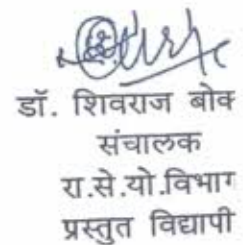 डॉ. शिवराज बोक
संचालक
रा.से.यो.विभाग
प्रस्तुत विद्यापी